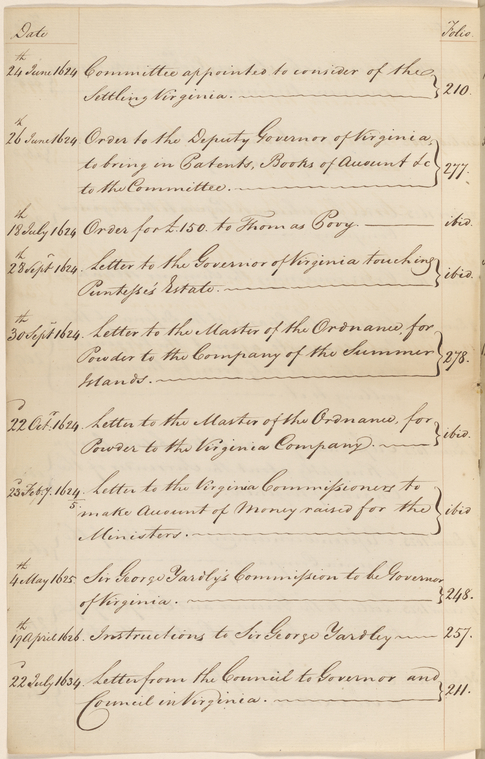 Date Folio
24th June 1624 Committee appointed to consider of the
Settling Virginia. 210.
26th June 1624 Order to the Deputy Governor of Virginia,
to bring in Patents, Books of Account &c
to the Committee. 277.
18th July 1624 Order for £150. to Thomas Povy. ibid.
28th Sept. 1624. Letter to the Governor of Virginia touching
Puntesse's Estate. ibid.
30th Sept. 1624. Letter to the Master of the Ordnance, for
Powder to the Company of the Summer
Islands. 278.
22d Octr. 1624. Letter to the Master of the Ordnance, for
Powder to the Virginia Company. ibid.
23d Feby. 1624/5. Letter to the Virginia Commissioners to
make Account of Money raised for the
Ministers. ibid
4th May 1625. Sir George Yardly's Commission to be Governor
of Virginia. 248.
19th April 1626. Instructions to Sir George Yardley 257.
22d July 1634. Letter from the Council to Governor and
Council in Virginia. 211.